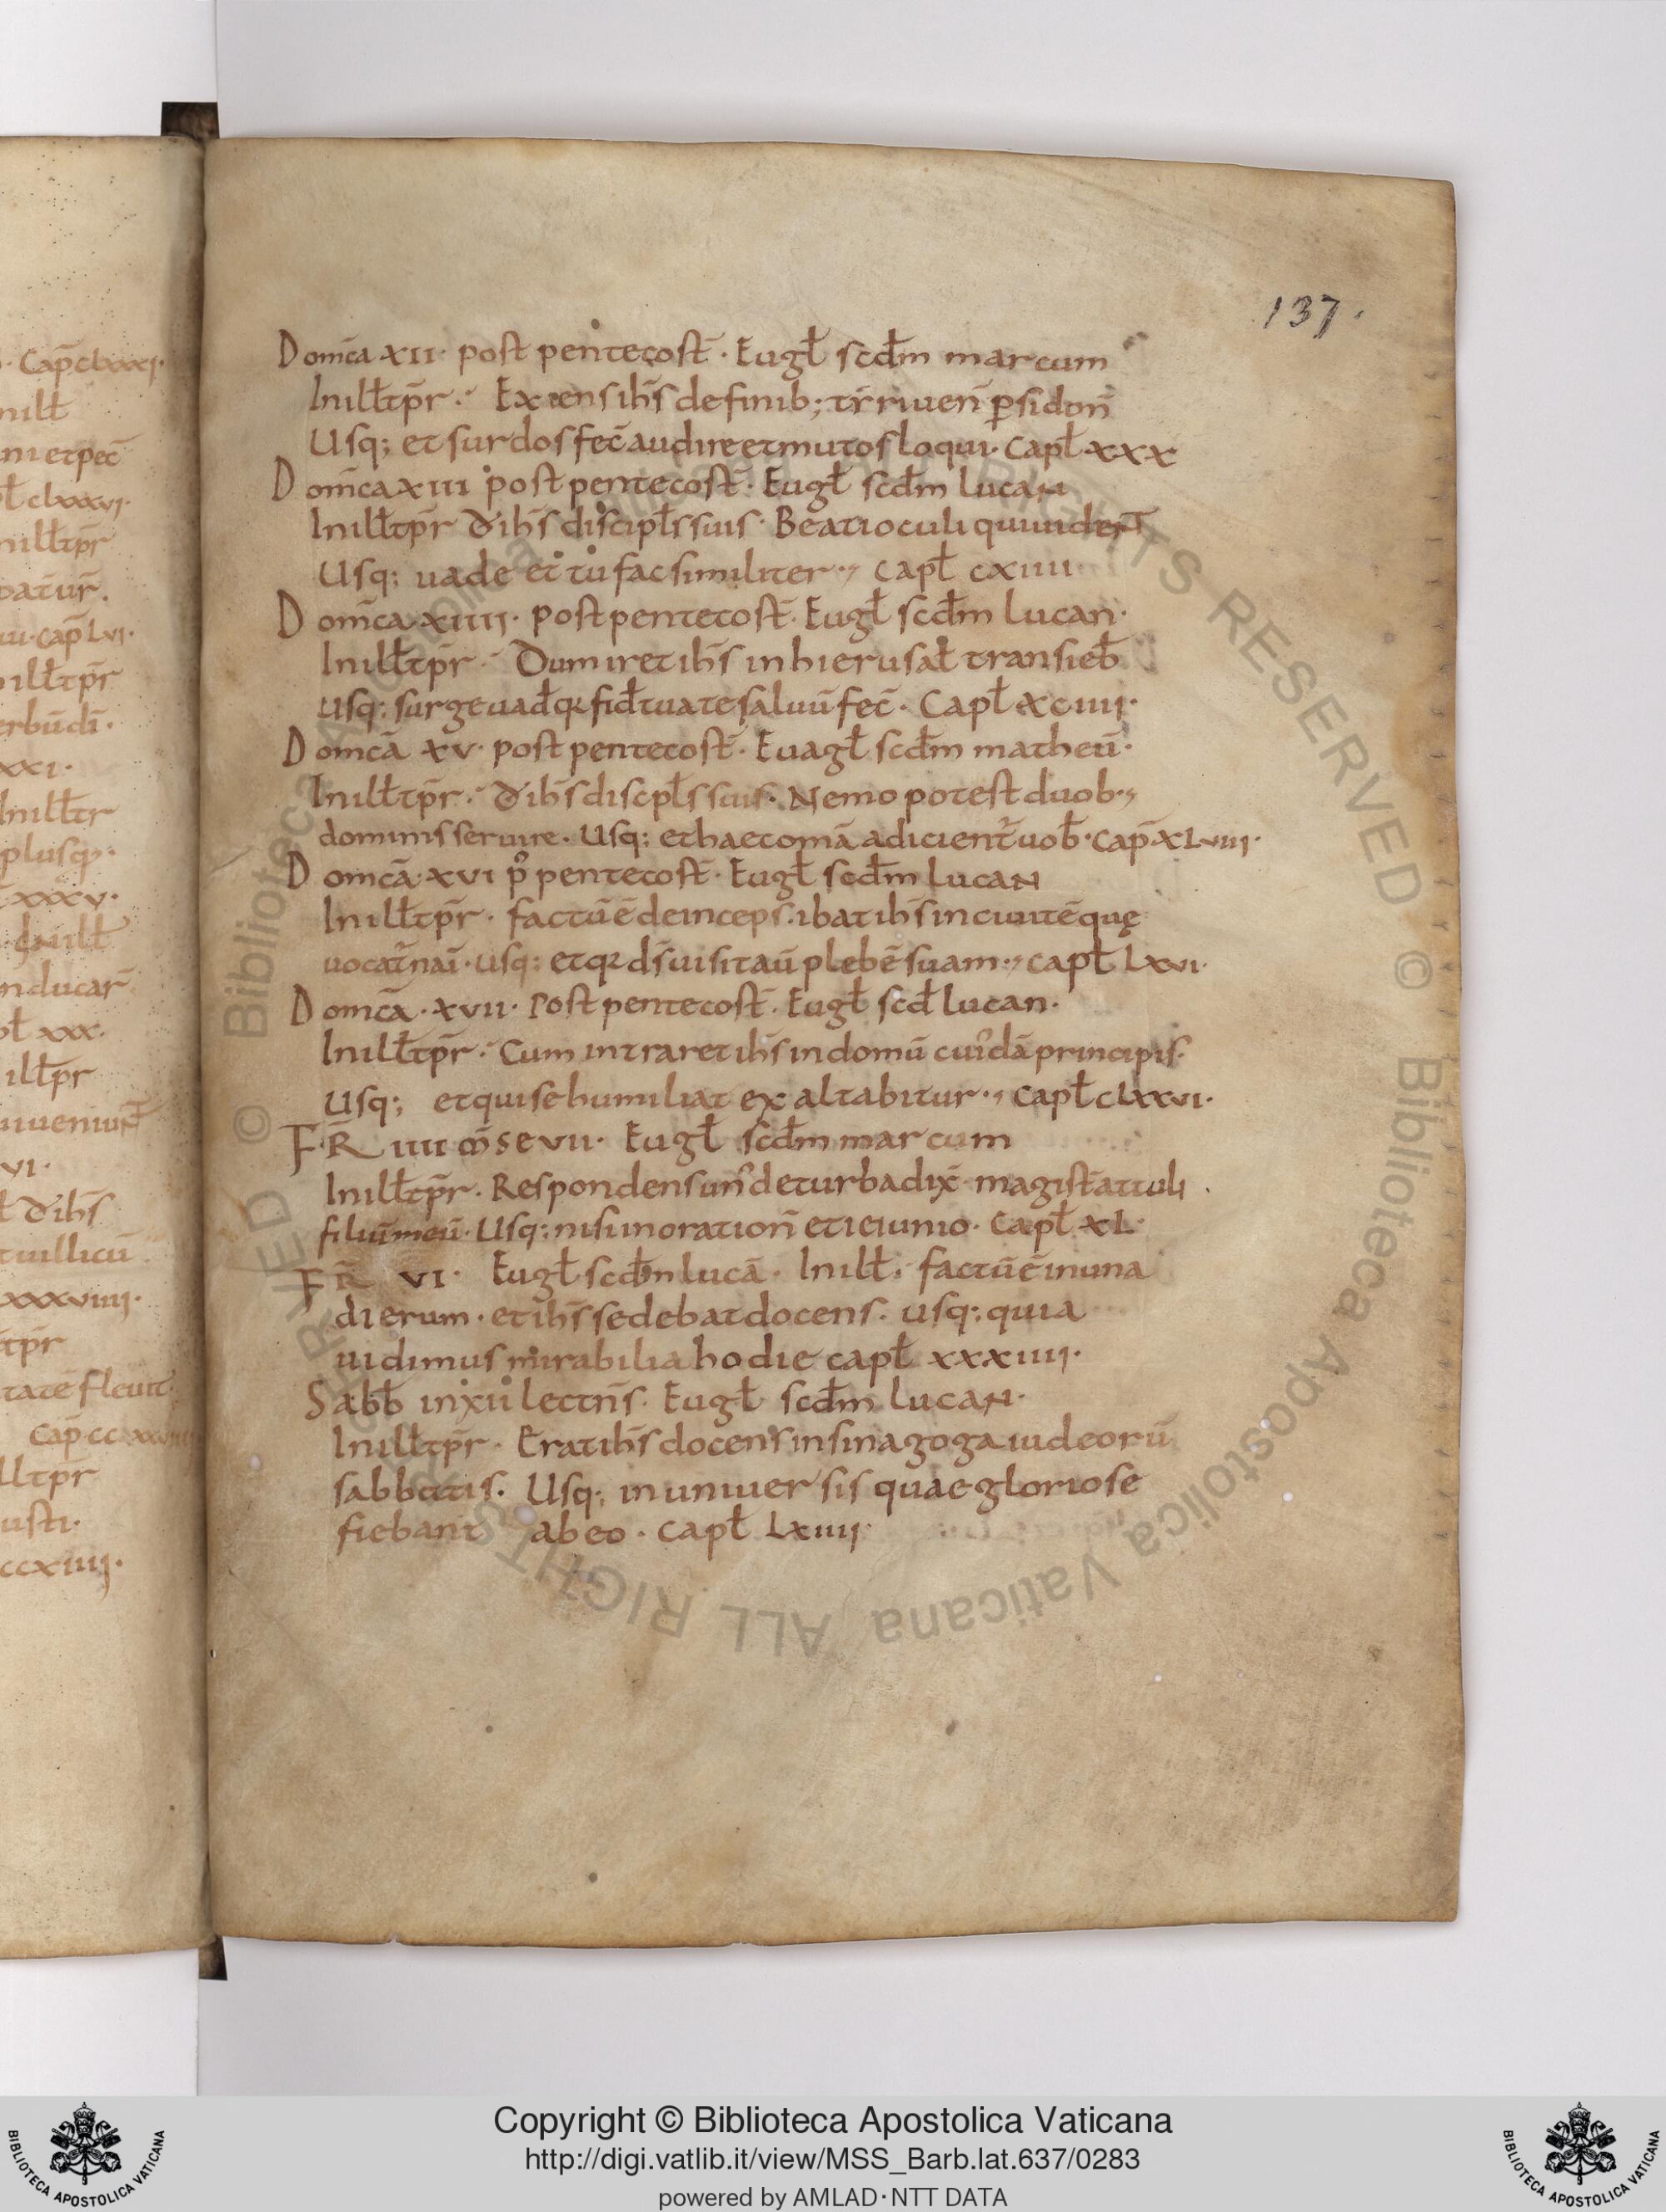 137.
Domc̄a XII· post pentecost̄· Eugł scdm̄ marcum
Inillt̄pr̄· Exiens ihs̄ de finib; tẏriuen̄ ꝑsidon̄
Usq; et surdos fec̄ audire et mutos loqui· Capł XXX
Domc̄a XIII post pentecost̄· Eugł scdm̄ lucan
Inillt̄pr̄ d̄ ihs̄ discipłs suis· Beati oculi qui uidert̄
Usq; uade et tu fac similiter·, Capł CXIIII
Domc̄a XIIII· post pentecost̄· Eugł scdm̄ lucan·
Inillt̄pr̄· Dum iret ihs̄ in hierusał transieb̄
usq; surge uad̄ qꝛ fid̄ tua te saluū fec̄· Capł XCIIII·
Domcā XV· post pentecost̄· Euagł scdm̄ matheū·
Inillt̄pr̄· d̄ ihs̄ discpłs suis· Nemo potest duob·,
dominis seruire· Usq; et haec omā adicient̄ uob̄· Cap̄ XLVIII·
Domcā XVI p̊ pentecost̄· Eugł scdm̄ lucan
Inillt̄pr̄· factū ē deinceps· ibat ihs̄ in ciuitē quę
uocat̄ naī· usq; et qꝛ ds̄ uisitaū plebē suam·, capł LXVI·
Domcā· XVII· Post pentecost̄· Eugł scd̄ lucan·
Inillt̄pr̄· Cum intraret ihs̄ in domū cuidā principis·
Usq; et qui se humiliat exaltabitur·, Capł CLXXVI·
FR̄ IIII m̄se VII· Eugł scdm̄ marcum
Inillt̄pr̄· Respondens un̄ de turba dix̄ magist̄ attuli
filiū meū· Usq; nisi in oration̄ et ieiunio· Capł XL·
FR̄ VI· Eugł scdm̄ lucā· Inillt̄· factū ē in una
dierum· et ihs̄ sedebat docens· usq; quia
uidimus mirabilia hodie capł XXXIIII·
Sabb̄ in XII lectn̄s· Eugł scdm̄ lucan·
Inillt̄pr̄· Erat ihs̄ docens in sinagoga iudeorū
sabbatis· Usq; in uniuersis quae gloriose
fiebant ab eo· Capł LXIIII·
Copyright © Biblioteca Apostolica Vaticana
http://digi.vatlib.it/view/MSS_Barb.lat.637/0283
powered by AMLAD·NTT DATA
BIBLIOTECA APOSTOLICA VATICANA
BIBLIOTECA APOSTOLICA VATICANA